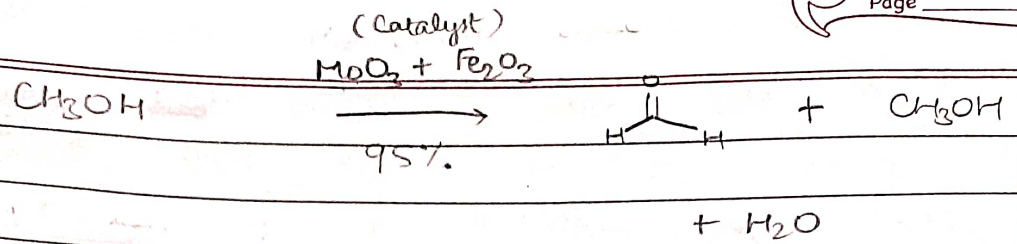 Page
(Catalyst)
MoO3 + Fe2O3
CH3OH ⟶ O H H + CH3OH
95%.
+ H2O